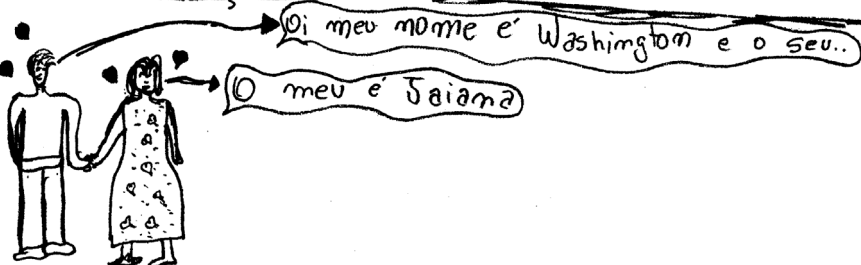 Oi meu nome é Washington e o seu..
O meu é Jaiana